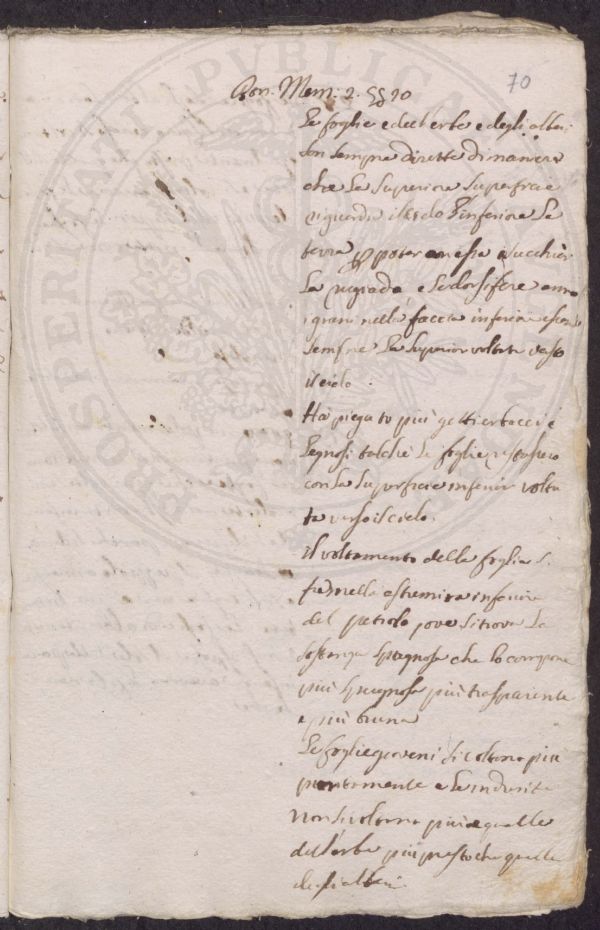 70
Bon. Mem: 2. §§ 10
Le foglie e dell'erbe e degli alberi
son sempre dirette di maniera
che la superiore superficie
riguarda il cielo l'inferiore la
terra per poter questa succhiar
la rugiada, e le dorsifere anno
i grani nella faccia inferiore
sempre la superior voltata verso
il cielo.
Ha piegato più getti erbacei e
legnosi talche le foglie restassero
con la superficie inferior volta
ta verso il cielo.
Il voltamento delle foglie si
fa nella estremità inferiore
del petiolo dove si trova la
sostanza spugnosa che lo compone
più spugnosa più trasparente
e più bruna
Le foglie giovani si voltano più
prontamente e le indurite
non si voltano più e quelle
dell'erbe più presto che quelle
degli alberi.
PROSPERITATI PUBLICAE